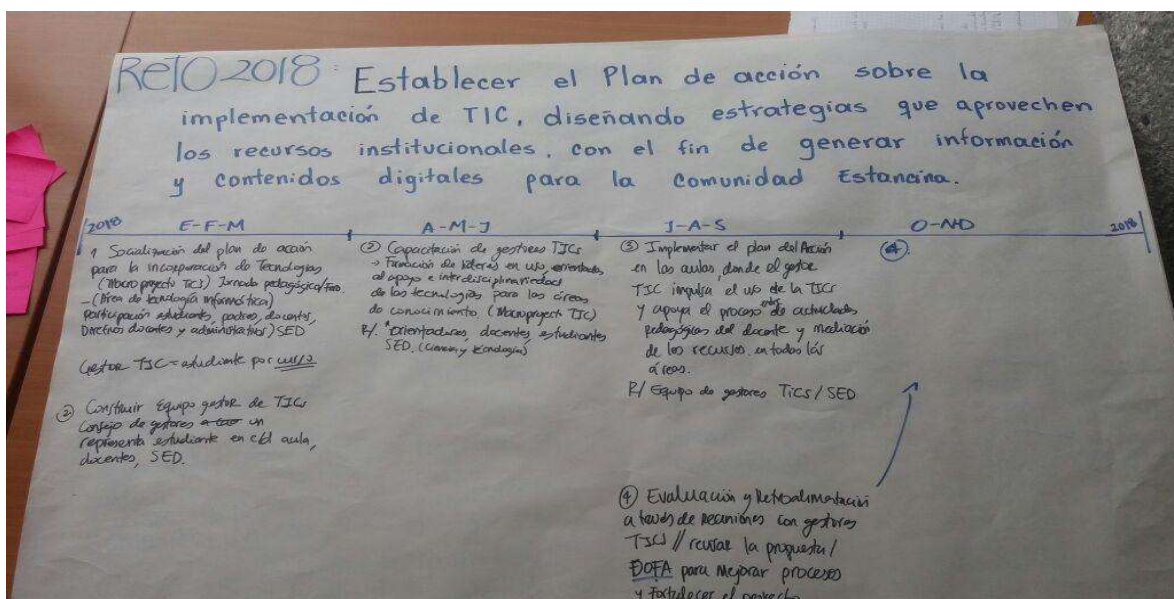 Reto 2018: Establecer el Plan de acción sobre la
implementación de TIC, diseñando estrategias que aprovechen
los recursos institucionales, con el fin de generar información
y contenidos digitales para la comunidad Estancina.
2018 E-F-M A-M-J J-A-S O-N-D 2018
1 Socialización del plan de acción
para la incorporación de Tecnologías
(Macro proyecto TICS) Jornada pedagógica/
-(Área de tecnología informática)
participación estudiantes, padres, docentes,
Directivos docentes y administrativos) SED
Gestor TIC = estudiante por curso
② Construir Equipo gestor de TICs
Consejo de gestores un
representa estudiante en c/d aula,
docentes, SED.
② Capacitación de gestores TICs
→ Formación de líderes en uso, orientados
al apoyo e interdisciplinariedad
de las tecnologías para las áreas
de conocimiento, (Macroproyecto TIC)
R/. Orientadores, docentes, estudiantes
SED, (Ciencia y tecnología)
③ Implementar el plan del Acción
en las aulas, donde el gestor
TIC impulsa el uso de la TICs
y apoya el proceso de actividades
pedagógicas del docente y mediación
de los recursos en todas las
áreas.
R/ Equipo de gestores TICs / SED
④.
④ Evaluación y Retroalimentación
a través de Reuniones con gestores
TICs // revisar la propuesta /
DOFA para mejorar procesos
y fortalecer el proyecto